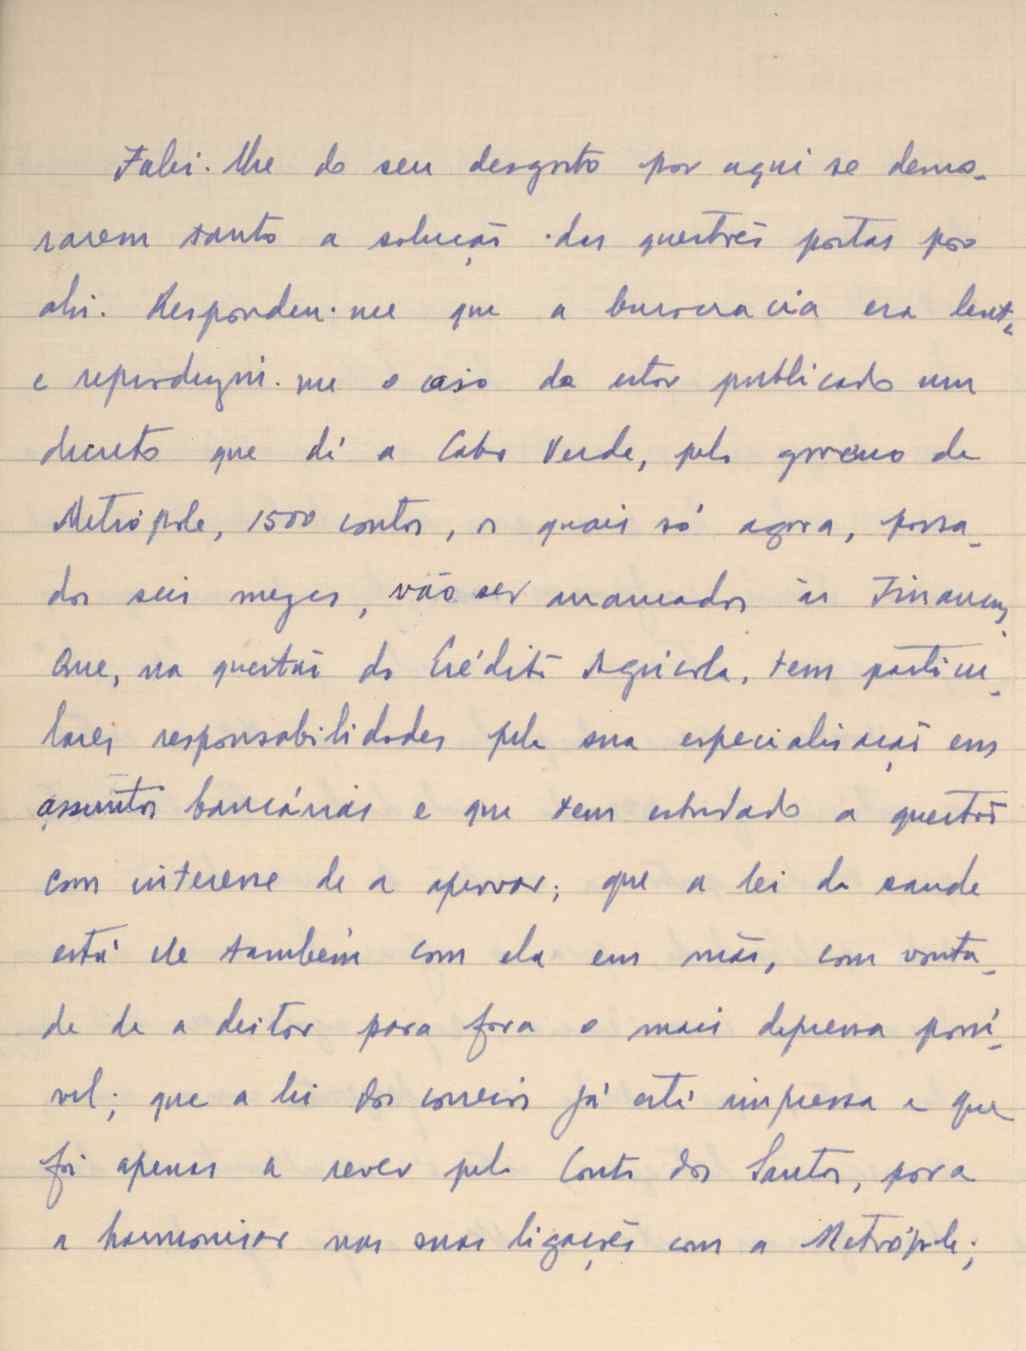 Falei-lhe do seu desgosto por aqui se demo-
rarem tanto a solução das questões postas por
ahi. Respondeu-me que a burocracia era lenta
e reproduziu-me o caso de estar publicado um
decreto que dá a Cabo Verde, pelo governo da
Metrópole, 1500 contos, os quais só agora, passa-
dos seis mezes, vão ser arrancados às Finanças,
Que, na questão do Crédito Agrícola, tem particu-
lares responsabilidades pela sua especialisação em
assuntos bancários e que tem estudado a questão
com interesse de a aprovar; que a lei da saude
está ele também com ela em mãos, com vonta-
de de a deitar para fora o mais depressa possí-
vel; que a lei dos correios já está impressa e que
foi apenas a rever pelo Couto dos Santos, para
a harmonisar nas suas ligações com a Metrópole;